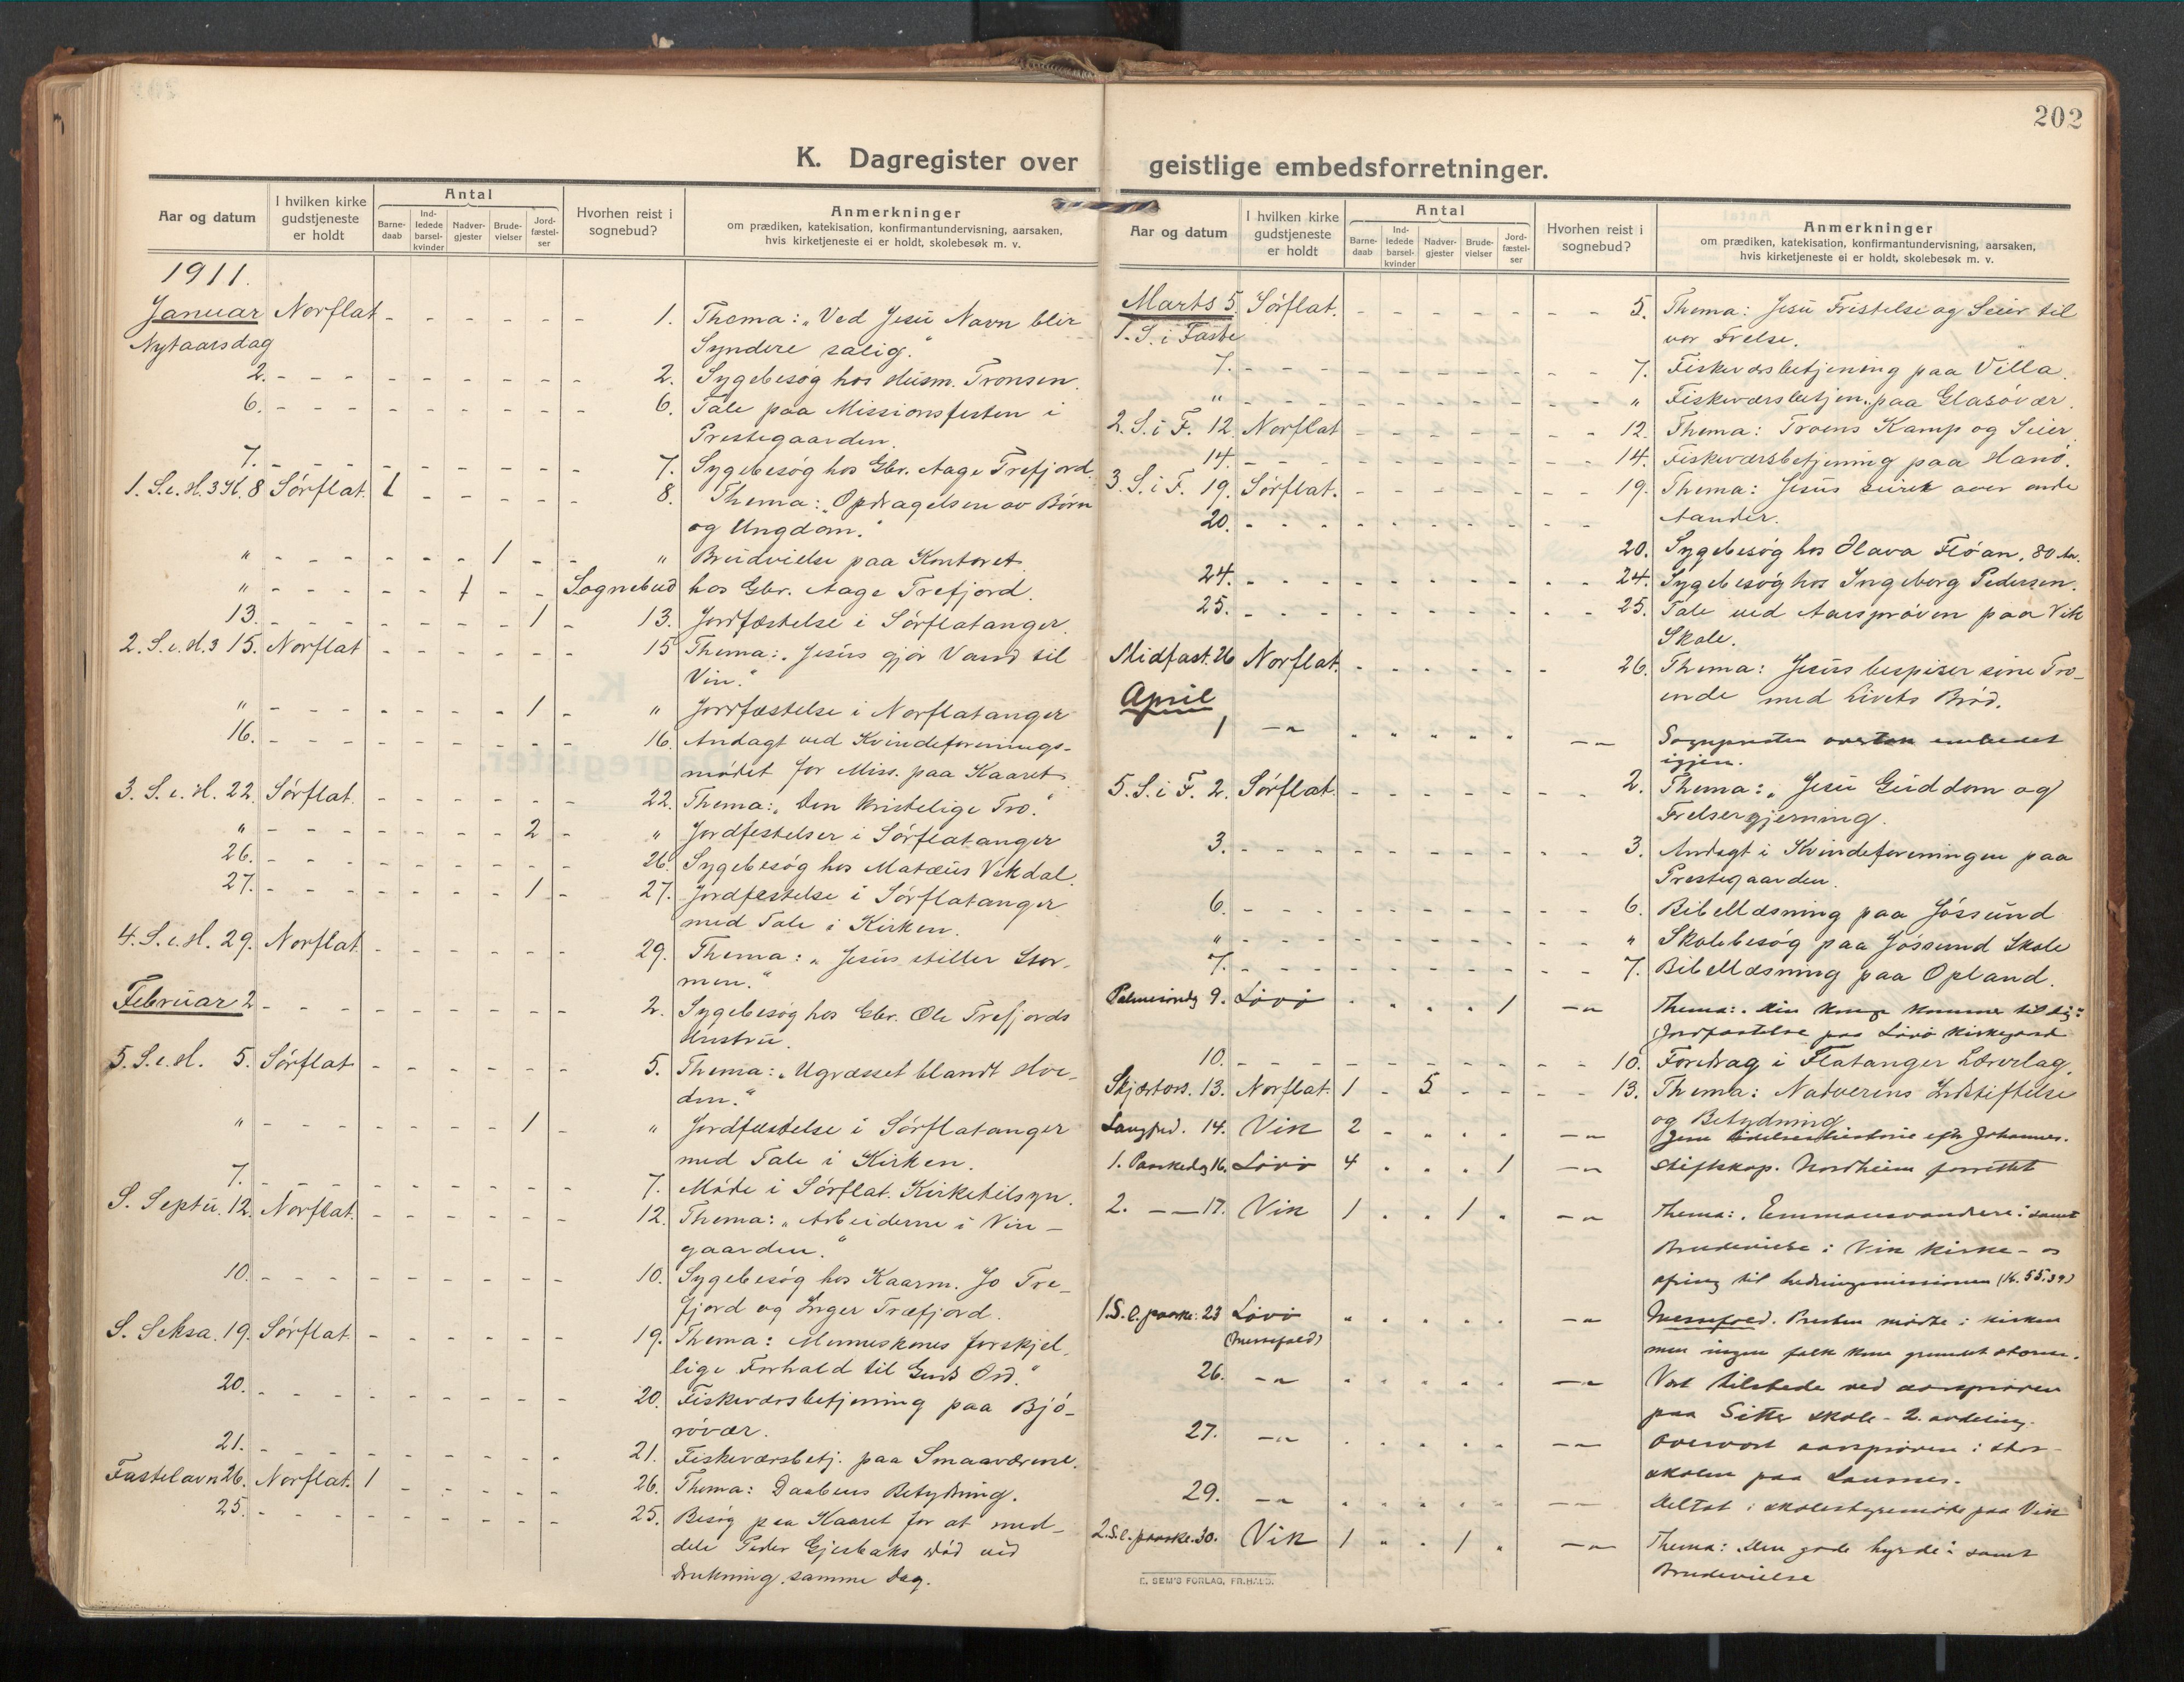 202
K. Dagregister over geistlige embedsforretninger.
Aar og datum
I hvilken kirke gudstjeneste er holdt
Antal
Barne-daab
Ind-ledede barsel-kvinder
Nadver-gjester
Brude-vielser
Jord-fæstel-ser
Hvorhen reist i sognebud?
Anmerkninger
om prædiken, katekisation, konfirmantundervisning, aarsaken,
hvis kirketjeneste ei er holdt, skolebesøk m. v.
1911.
Januar Norflat - - - - - - 1. Thema: „Ved Jesu Navn blir
Nytaarsdag Syndere salig."
2. - - - - - - - - - 2. Sygebesøg hos Husm. Tronsen.
6. - - - - - - - - - 6. Tale paa Missionsfesten i
Prestegaarden.
7. - - - - - - - - - 7. Sygebesøg hos Gbr. Aage Trefjord.
1. S. e. H. 3 K. 8 Sørflat. 1 - - - - - 8. Thema: „Opdragelsen av Børn
og Ungdom."
" - - - - - - 1 - - " Brudvielse paa Kontoret.
" - - - - - 1 - - Sognebud hos Gbr. Aage Trefjord.
13. - - - - - - - 1 - 13. Jordfæstelse i Sørflatanger.
2. S. e. H. 3 15. Norflat - - - - - - 15 Thema: „Jesus gjør Vand til
Vin."
" - - - - - - - 1 - " Jordfæstelse i Norflatanger
16. - - - - - - - - - 16. Andagt ved Kvindeforenings-
mødet for Miss. paa Kaaret.
3. S. e. H. 22. Sørflat. - - - - - - 22. Thema: „Den kristelige Tro."
" - - - - - - - 2 - " Jordfestelser i Sørflatanger
26. - - - - - - - - - 26. Sygebesøg hos Matæus Vekdal.
27. - - - - - - - 1 - 27. Jordfestelse i Sørflatanger
med Tale i Kirken.
4. S. e. H. 29. Norflat - - - - - - 29. Thema: „Jesus stiller Stor-
men."
Februar 2 - - - - - - - - - 2. Sygebesøg hos Gbr. Ole Trefjords
Hustru.
5. S. e. H. 5. Sørflat - - - - - - 5. Thema: „Ugræsset blandt Hve-
den."
" - - - - - - - 1 " Jordfæstelse i Sørflatanger
med Tale i Kirken.
7. - - - - - - - - - 7. Møde i Sørflat. Kirketilsyn.
S. Septu. 12. Norflat. - - - - - - 12. Thema: „Arbeiderne i Vin-
gaarden."
10. - - - - - - - - - 10. Sygebesøg hos Kaarm. Jo Tre-
fjord og Inger Træfjord.
S. Seksa. 19. Sørflat. - - - - - - 19. Thema: Menneskenes forskjel-
lige Forhold til Guds Ord."
20. - - - - - - - - - 20. Fiskeværsbetjening paa Bjø-
røvær.
21. - - - - - - - - - 21. Fiskeværsbetj. paa Smaaværene.
Fastelavn 26. Norflat. 1 - - - - - 26. Thema: Daabens Betydning.
25. - - - - - - - - - 25. Besøg paa Kaaret for at med-
dele Peder Gjesbaks Død ved
Drukning samme Dag.
Aar og datum
I hvilken kirke gudstjeneste er holdt
Antal
Barne-daab
Ind-ledede barsel-kvinder
Nadver-gjester
Brude-vielser
Jord-fæstel-ser
Hvorhen reist i sognebud?
Anmerkninger
om prædiken, katekisation, konfirmantundervisning, aarsaken,
hvis kirketjeneste ei er holdt, skolebesøk m. v.
Marts 5. Sørflat. - - - - - - - 5. Thema: Jesu Fristelse og Seier til
1. S. i Faste vor Frelse.
7. - - - - - - - - - 7. Fiskeværsbetjening paa Villa.
" - - - - - - - - - " Fiskeværsbetjen. paa Glasøvær.
2. S. i F. 12. Norflat - - - - - - - 12. Thema: Troens Kamp og Seier.
14. - - - - - - - - - 14. Fiskeværsbetjening paa Hanø.
3. S. i F. 19. Sørflat. - - - - - - - 19. Thema: Jesus seirer over onde
Aander.
20. - - - - - - - - - 20. Sygebesøg hos Olava Fløan, 80 Aar.
24. - - - - - - - - - 24. Sygebesøg hos Ingeborg Pedersen.
25. - - - - - - - - - 25. Tale ved Aarsprøven paa Vik
Skole.
Midfast. 26 Norflat. - - - - - - 26. Thema: Jesus bespiser sine Tro-
ende med Livets Brød.
April
1 -"- " " " " " -"- Sognepresten overtok embedet
igjen.
5. S. i F. 2. Sørflat. - - - - - - - 2. Thema: „Jesu Guddom og
Frelsergjerning.
3. - - - - - - - - - 3. Andagt i Kvindeforeningen paa
Prestegaarden.
6. - - - - - - - - - 6. Bibellæsning paa Jøssund
" - - - - - - - - - " Skolebesøg paa Jøssund Skole
7. - - - - - - - - - 7. Bibellæsning paa Opland.
Palmesøndg 9. Løvø " " " " 1 -"- Thema: „Din konge kommer til dig"
Jordfæstelse paa Løvø kirkegaard
10. - - - - - - - - - 10. Foredrag i Flatanger Lærerlag.
Skjærtors. 13. Norflat. 1 - 5 - - - - 13. Thema: Nadverens Indstiftelse
og Betydning
Langfred. 14. Vik 2 " " " " -"- Jesu lidelseshistorie efter Johannes.
1. Paaskedag 16. Løvø 4 " " " 1 -"- Stiftskap. Nordheim forrettet
2. -"- 17. Vik 1 " " 1 " -"- Thema: „Emmausvandrere" samt
Brudevielse i Vik kirke - og
ofring til hedningemissionen (K. 55.39)
1. S. e. paaske. 23 Løvø " " " " " -"- Messefald. Presten mødte i kirken
(Messefald) men ingen folk kom grundet storm.
26. -"- " " " " " -"- Var tilstede ved aarsprøven
paa Sitter skole - 2. avdeling.
27. -"- " " " " " -"- Overvar aarsprøven i stor-
skolen paa Lausnes.
29. -"- " " " " " -"- Deltat i skolestyremøte paa Vik
2. S. e. paaske. 30. Vik 1 " " 1 " -"- Thema: „Den gode hyrde" samt
Brudevielse
E. SEM'S FORLAG, FR.HALD.